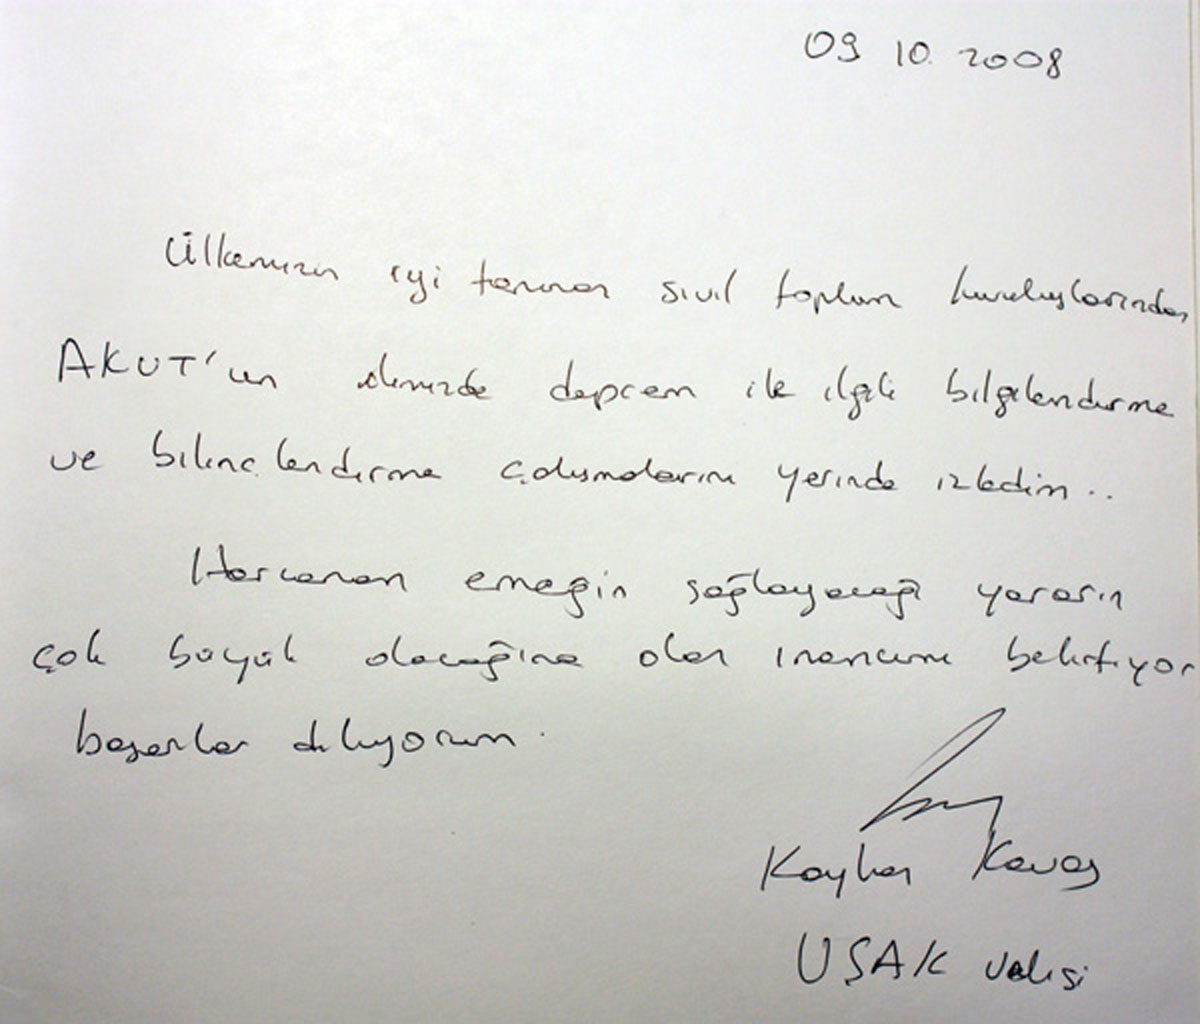 09 10. 2008
Ülkemizin iyi tanınan sivil toplum kuruluşlarından
AKUT'un ilimizde deprem ile ilgili bilgilendirme
ve bilinçlendirme çalışmalarını yerinde izledim..
Harcanan emeğin sağlayacağı yararın
çok büyük olacağına olan inancımı belirtiyor
başarılar diliyorum.
Kayhan Kavas
UŞAK Valisi